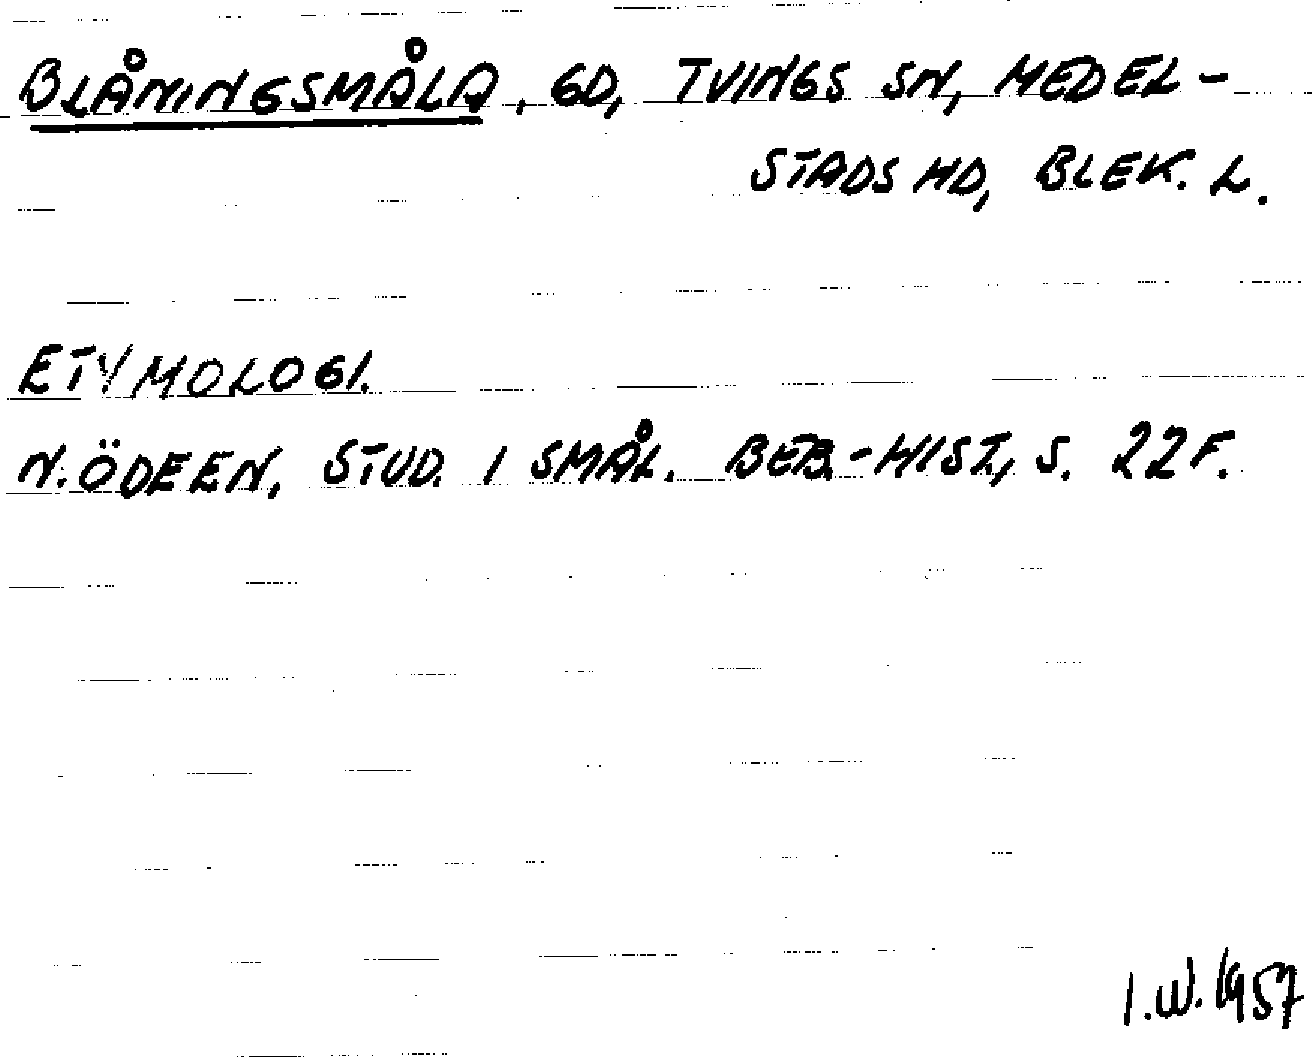 BLÅNINGSMÅLA, GD, TVINGS SN, MEDEL-
STADS HD, BLEK. L.
ETYMOLOGI.
N. ÖDEEN, STUD. I SMÅL. BEB.-HIST., S. 22F.
I.W. 1957